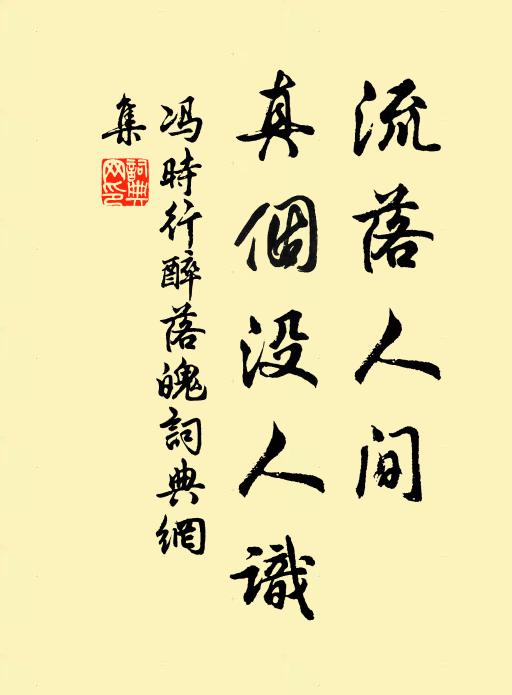 流落人间
真個没人識
冯時行醉落魄詞典網
集
詞典
网印